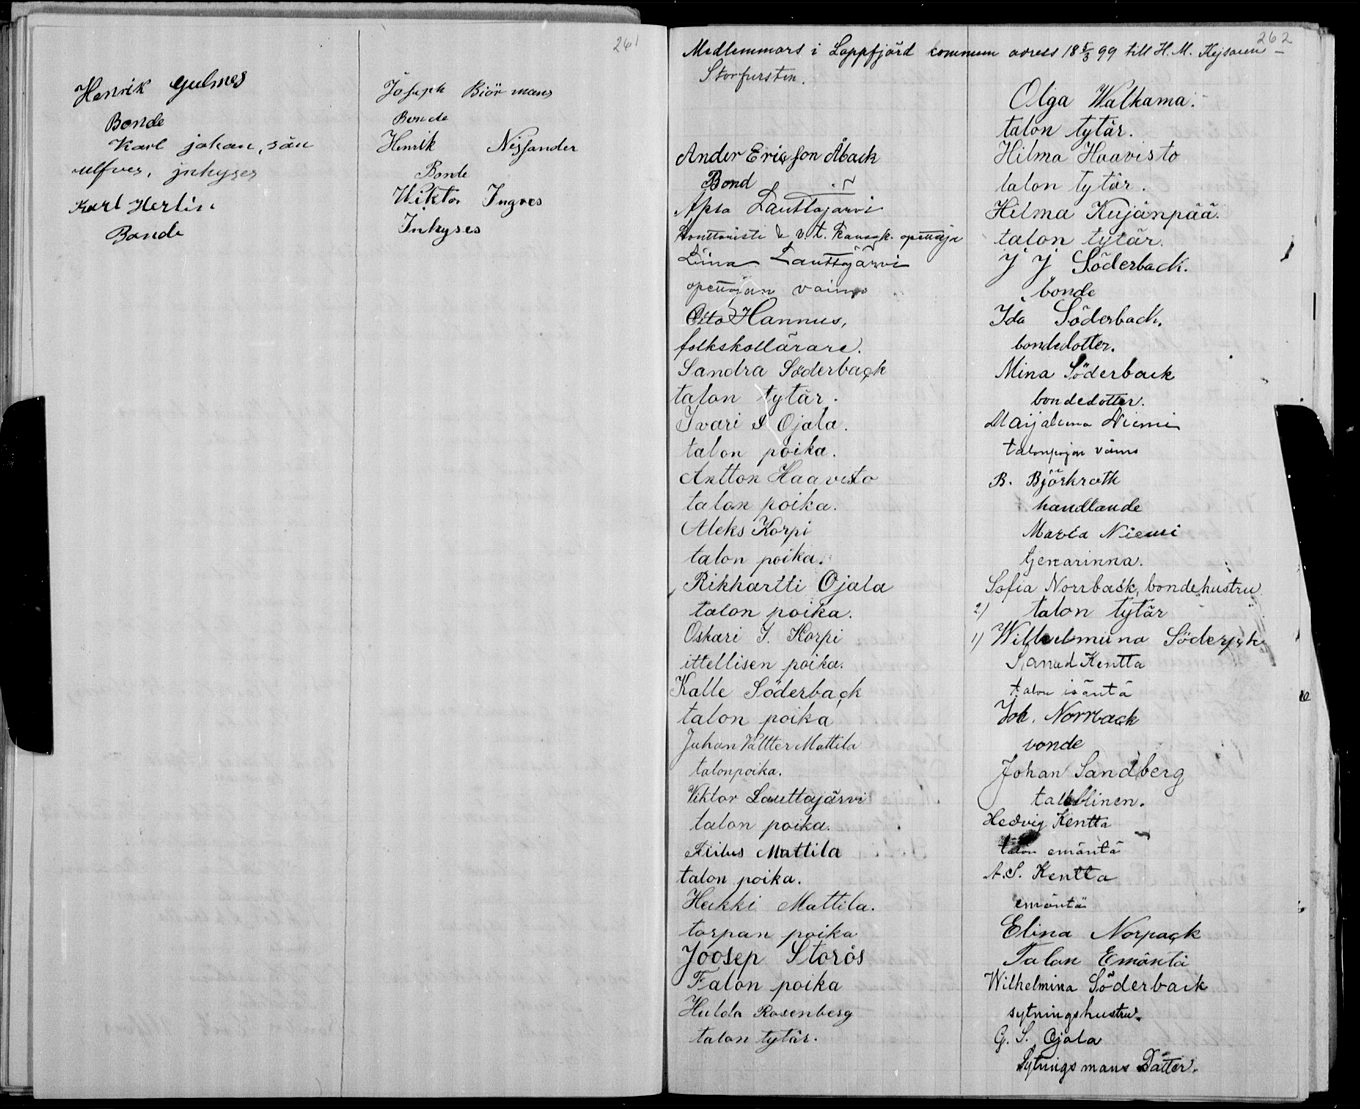 261
Henrik Gulmes
Bonde
Karl johan, sån
ulfves, inhyses
Karl Herlin
Bonde
Joseph Biör mans
Bonde
Henrik Nissander
Bonde
Wiktor Ingves
Inhyses
262
Medlemmars i Lappfjärd kommun adress 18 5/3 99 till H. M. Kejsaren –
Storfursten.
Ander Ericsson Åback
Bond
Lauttajarvi
konttoristi & v.t. kansak. opettaja
Liina Lauttajärvi
opettajan vaimo
Otto Hannus,
folkskollärare.
Sandra Söderback
talon tytär.
Ivari I Ojala.
talon poika.
Antton Haavisto
talon poika.
Aleks Korpi
talon poika.
Rikhartti Ojala
talon poika.
Oskari I. Korpi
ittellisen poika.
Kalle Söderback
talon poika
Juhan Valtter Mattila
talonpoika.
Viktor Lauttajärvi
talon poika.
Mattila
talon poika.
Heikki Mattila.
torpan poika
Joosep Storös
Talon poika
Hulda Rosenberg
talon tytär.
Olga Walkama.
talon tytär.
Hilma Haavisto
talon tytär.
Hilma Kujanpää.
talon tytär.
J J Söderback.
bonde
Ida Söderback.
bondedotter.
Mina Söderback
bondedotter.
Maijaleena Niemi
talonpojan vaimo
B. Björkroth
handlande
Maria Niemi
Generinna.
Sofia Norrback, bondehustru
2) talon tytär
1) Wilhelmiina
Kentta
talon isäntä
Joh. Norrback
bonde
Johan Sandberg
talollinen.
Hedvig Kentta
talon emäntä
A. S. Kentta
emäntä
Elina Norpack
Talon Emäntä
Wilhelmina Söderback
sytningshustru.
G. S. Ojala
Sytnings mans Dotter.